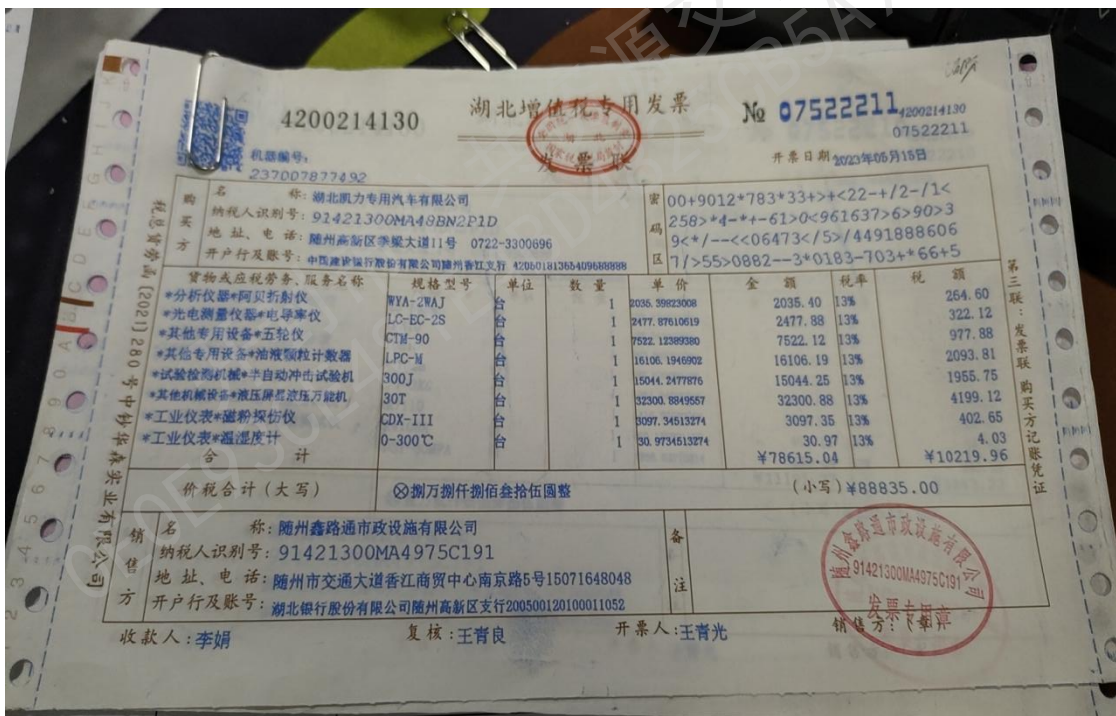 4200214130
湖北增值税专用发票
发票联
№ 07522211
4200214130
07522211
机器编号:
237007877492
开票日期 2023年05月15日
购买方
名 称: 湖北凯力专用汽车有限公司
纳税人识别号: 91421300MA48BN2P1D
地址、电话: 随州高新区季梁大道11号 0722-3300696
开户行及账号: 中国建设银行股份有限公司随州香江支行 42050181365409688888
密码区
00+9012*783*33+>+<22-+/2-/1<
258>*4-*+-61>0<961637>6>90>3
9<*/--<<06473</5>/4491888606
7/>55>0882--3*0183-703+*66+5
货物或应税劳务、服务名称 规格型号 单位 数量 单价 金额 税率 税额
*分析仪器*阿贝折射仪 WYA-2WAJ 台 1 2035.39823008 2035.40 13% 264.60
*光电测量仪器*电导率仪 LC-EC-2S 台 1 2477.87610619 2477.88 13% 322.12
*其他专用设备*五轮仪 CTM-90 台 1 7522.12389380 7522.12 13% 977.88
*其他专用设备*油液颗粒计数器 LPC-M 台 1 16106.1946902 16106.19 13% 2093.81
*试验检测机械*半自动冲击试验机 300J 台 1 15044.2477876 15044.25 13% 1955.75
*其他机械设备*液压屏显液压万能机 30T 台 1 32300.8849557 32300.88 13% 4199.12
*工业仪表*磁粉探伤仪 CDX-III 台 1 3097.34513274 3097.35 13% 402.65
*工业仪表*温湿度计 0-300℃ 台 1 30.9734513274 30.97 13% 4.03
合 计 ¥78615.04 ¥10219.96
价税合计(大写) ⊗捌万捌仟捌佰叁拾伍圆整 (小写)¥88835.00
销售方
名 称: 随州鑫路通市政设施有限公司
纳税人识别号: 91421300MA4975C191
地址、电话: 随州市交通大道香江商贸中心南京路5号15071648048
开户行及账号: 湖北银行股份有限公司随州高新区支行200500120100011052
备注
随州鑫路通市政设施有限公司
91421300MA4975C191
发票专用章
收款人: 李娟 复核: 王青良 开票人: 王青光 销售方: (章)
税总货劳函〔2021〕280号中钞华森实业有限公司
第三联:发票联 购买方记账凭证